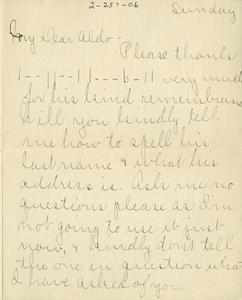 2-25-06
Sunday
My Dear Aldo -
Please thank
1--11--11---6-11 very much
for his kind remembrance
Will you kindly tell
me how to spell his
last name & what his
address is. Ask me no
questions please as I'm
not going to use it just
now, & kindly don't tell
the one in question what
I have asked of you.